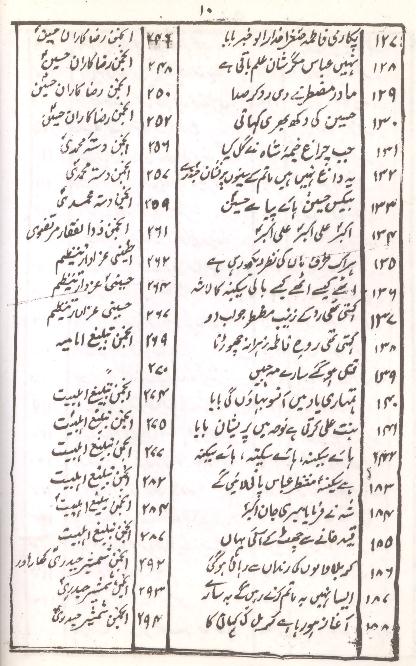 ۱۰
۱۲۷ پکاری فاطمہ صغرا خدارا دو خبر بابا ۲۴۶ انجمن رضا کاران حسینی
۱۲۸ نہیں عباس مگر شان علم باقی ہے ۲۴۸ انجمن رضا کاران حسینی
۱۲۹ مادر مضطر نے دی رو رو کر صدا ۲۵۰ انجمن رضا کاران حسینی
۱۳۰ حسین کی دکھ بھری کہانی ۲۵۲ انجمن رضا کاران حسینی
۱۳۱ جب چراغ خیمۂ شاہ نے گل کیا ۲۵۶ انجمن دستہ محمدی
۱۳۲ یہ داغ نہیں ہیں ماتم کے سینوں پر نشان ۲۵۷ انجمن دستہ محمدی
۱۳۳ بیکس حسین ہائے پیاسے حسین ۲۵۹ انجمن دستہ محمدی
۱۳۴ اکبر علی اکبر علی اکبر ۲۶۱ انجمن ذوالفقار مرتضوی
۱۳۵ ہر اک طرف ماں کی نظر ڈھونڈ رہی ہے ۲۶۲ حسینی عزادار تنظیم
۱۳۶ اٹھے کیسے اٹھے کیسے بالی سکینہ کا لاشہ ۲۶۴ حسینی عزادار تنظیم
۱۳۷ کہتی تھی رو کے زینب مضطر جواب دو ۲۶۷ حسینی عزادار تنظیم
۱۳۸ کہتی تھی روح فاطمہ زہرا نہ چھوڑنا ۲۶۹ انجمن تبلیغ امامیہ
۱۳۹ قتل ہو گئے سارے مہ جبیں ۲۷۰ "
۱۴۰ تمہاری یاد میں آنسو بہاؤں گی بابا ۲۷۴ انجمن تبلیغ اہلبیت
۱۴۱ بنت علی کرتی ہے نوحہ میں پریشان بابا ۲۷۵ انجمن تبلیغ اہلبیت
۱۴۲ ہائے سکینہ، ہائے سکینہ، ہائے سکینہ ۲۷۷ انجمن تبلیغ اہلبیت
۱۸۳ ہے سکینہ منتظر عباس پانی لائیں گے ۲۸۲ انجمن تبلیغ اہلبیت
۱۸۴ شہ نے فرمایا میری جان اکبر ۲۸۴ انجمن تبلیغ اہلبیت
۱۸۵ قید خانے سے چھٹ کے آئی یہاں ۲۸۷ انجمن تبلیغ اہلبیت
۱۸۶ کربلا والوں کی زنداں سے رہائی ہوگی ۲۹۲ انجمن شمشیر حیدری کھارادر
۱۸۷ ایسا نہیں یہ ماتم کرتے رہیں گے یہ سارے ۲۹۳ انجمن شمشیر حیدری
۱۸۸ آغاز ہو رہا ہے کربل کی کہانی کا ۲۹۴ انجمن شمشیر حیدری